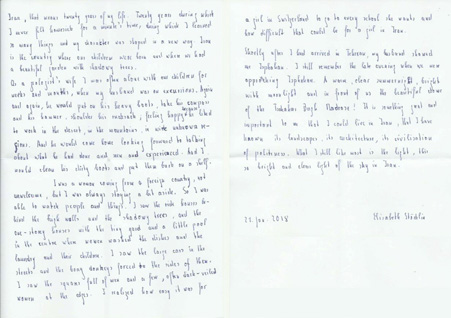 Iran, that means twenty years of my life. Twenty years during which
I never felt homesick for a minute's time, during which I learned
so many things and my character was shaped in a new way. Iran
is the country where our children were born and where we had
a beautiful garden with shadowy trees.
As a geologist's wife I was often alone with our children for
weeks and months, when my husband was on excursions. Again
and again, he would put on his heavy boots, take his compass
and his hammer, shoulder his rucksack, feeling happy again
to work in the desert, in the mountains, in unknown re-
gions. And he would come home looking forward to talking
about what he had done and seen and experienced. And I
would clean his dirty boots and put them back on a shelf.
I was a woman coming from a foreign country, not
unwelcome, but I was always staying a bit aside. So I was
able to watch people and things. I saw the wide houses be-
hind the high walls and the shadowy trees, and the
one-storey houses with the long yard and a little pool
in the centre where women washed the dishes and the
laundry and their children. I saw the large cars in the
streets and the donkeys forced to the sides of them.
I saw the squares full of men and a few, often dark-veiled
women at the edges. I realized how easy it was for
a girl in Switzerland to go to every school she wants and
how difficult that could be for a girl in Iran.
Shortly after I had arrived in Teheran, my husband showed
me Isphahan. I still remember the late evening when we were
approaching Isphahan. A warm, clear summernight, bright
with moonlight and in front of us the beautiful dome
of the Madrese! It is something great and
important to me that I could live in Iran, that I have
known its landscapes, its architecture, its civilisation
of politeness. What I still like most is the light, this
so bright and clear light of the sky in Iran.
22. Jan. 2018